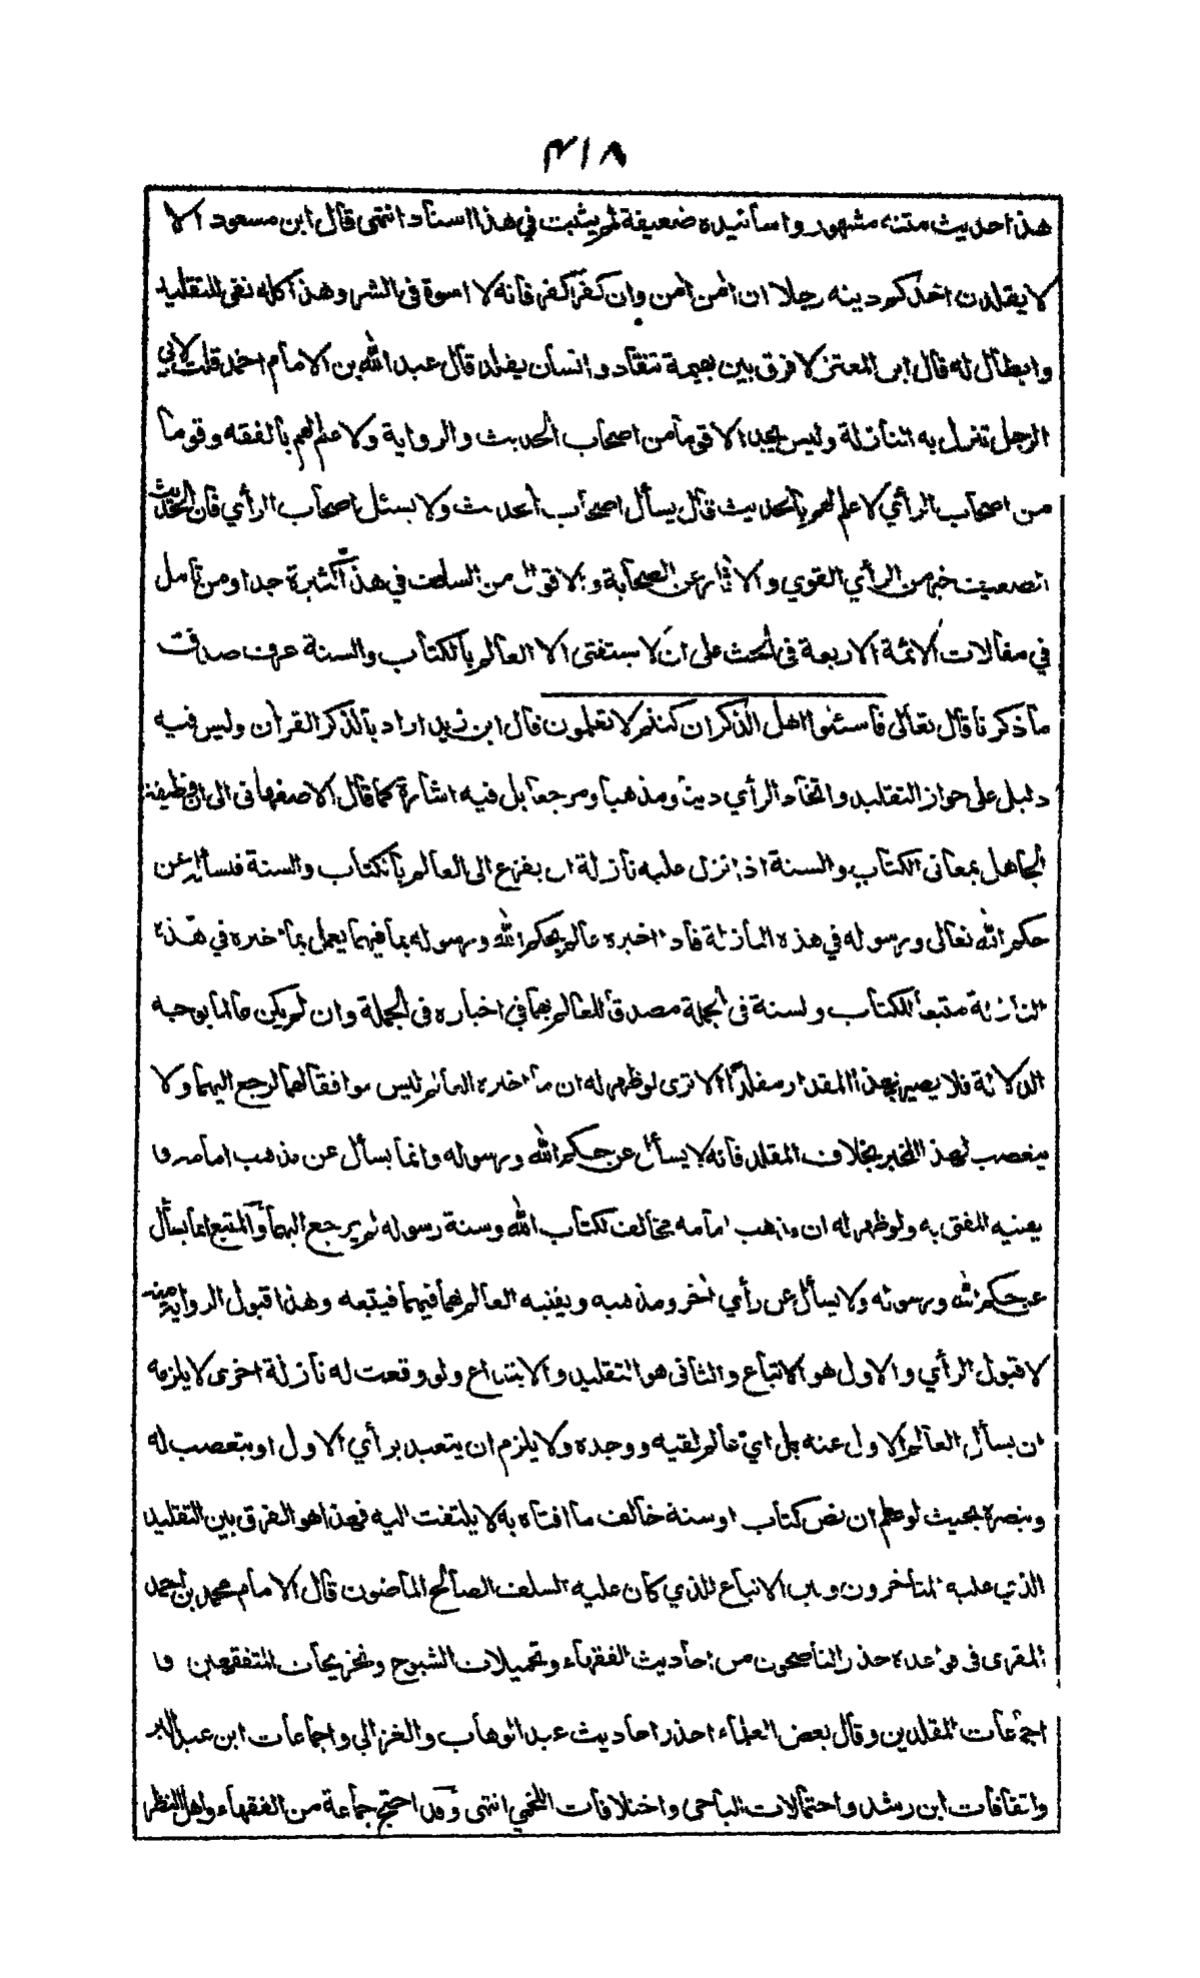 ٤١٨
هذا حديث متنه مشهور واسانيده ضعيفة لم يثبت في هذا اسناد انتهى قال ابن مسعود الا
لا يقلدن احدكم دينه رجلا ان امن امن وان كفر كفر فانه لا اسوة في الشر وهذا كله نفي للتقليد
وابطال له قال ابن المعتز لا فرق بين بهيمة تنقاد وانسان يقلد قال عبد الله بن الامام احمد قلت لابي
الرجل تنزل به النازلة وليس يجد الا قوما من اصحاب الحديث والرواية ولا علم لهم بالفقه وقوما
من اصحاب الرأي لا علم لهم بالحديث قال يسأل اصحاب الحديث ولا يسئل اصحاب الرأي فان الحديث
الضعيف خير من الرأي القوي والاثار عن الصحابة والاقوال من السلف في هذا كثيرة جدا ومن تأمل
في مقالات الائمة الاربعة في الحث على ان لا يستفتى الا العالم بالكتاب والسنة عرف صدق
ما ذكرنا قال تعالى فاسئلوا اهل الذكر ان كنتم لا تعلمون قال ابن زيد اراد بالذكر القرأن وليس فيه
دليل على جواز التقليد واتخاذ الرأي دينا ومذهبا ومرجعا بل فيه اشارة كما قال الاصفهاني الى ان وظيفة
الجاهل بمعاني الكتاب والسنة اذا نزل عليه نازلة ان يفزع الى العالم بالكتاب والسنة فيسأله عن
حكم الله تعالى ورسوله في هذه النازلة فاذا اخبره عالم بحكم الله ورسوله بما فيهما يعمل بما اخبره في هذه
النازلة متبعا للكتاب والسنة في الجملة مصدقا للعالم بهما في اخباره في الجملة وان لم يكن عالما بوجه
الدلالة فلا يصير بهذا المقدار مقلدا الا ترى لو ظهر له ان ما اخبره العالم ليس موافقا لهما لرجع اليهما ولا
يتعصب لهذا المخبر بخلاف المقلد فانه لا يسأل عن حكم الله ورسوله وانما يسأل عن مذهب امامه وما
يفتيه المفتي به ولو ظهر له ان مذهب امامه مخالف لكتاب الله وسنة رسوله لم يرجع اليهما والمتبع انما يسأل
عن حكم الله ورسوله ولا يسأل عن رأي اخر ومذهبه ويفتيه العالم بهما فيهما فيتبعه وهذا قبول الرواية منه
لا قبول الرأي والاول هو الاتباع والثاني هو التقليد والابتداع ولو وقعت له نازلة اخرى لا يلزمه
ان يسأل العالم الاول عنه بل اي عالم لقيه ووجده ولا يلزم ان يتعبد برأي الاول او يتعصب له
وينصره بحيث لو علم ان نص كتاب او سنة خالف ما افتاه به لا يلتفت اليه فهذا هو الفرق بين التقليد
الذي عليه المتاخرون وبين الاتباع الذي كان عليه السلف الصالح الماضون قال الامام محمد بن احمد
المقري في قواعده حذر الناصحون من احاديث الفقهاء وتحميلات الشيوخ وتخريجات المتفقهين و
اجماعات المقلدين وقال بعض العلماء احذر احاديث عبد الوهاب والغزالي واجماعات ابن عبد البر
واتفاقات ابن رشد واحتمالات الباجي واختلافات اللخمي انتهى وقد احتج جماعة من الفقهاء واهل النظر